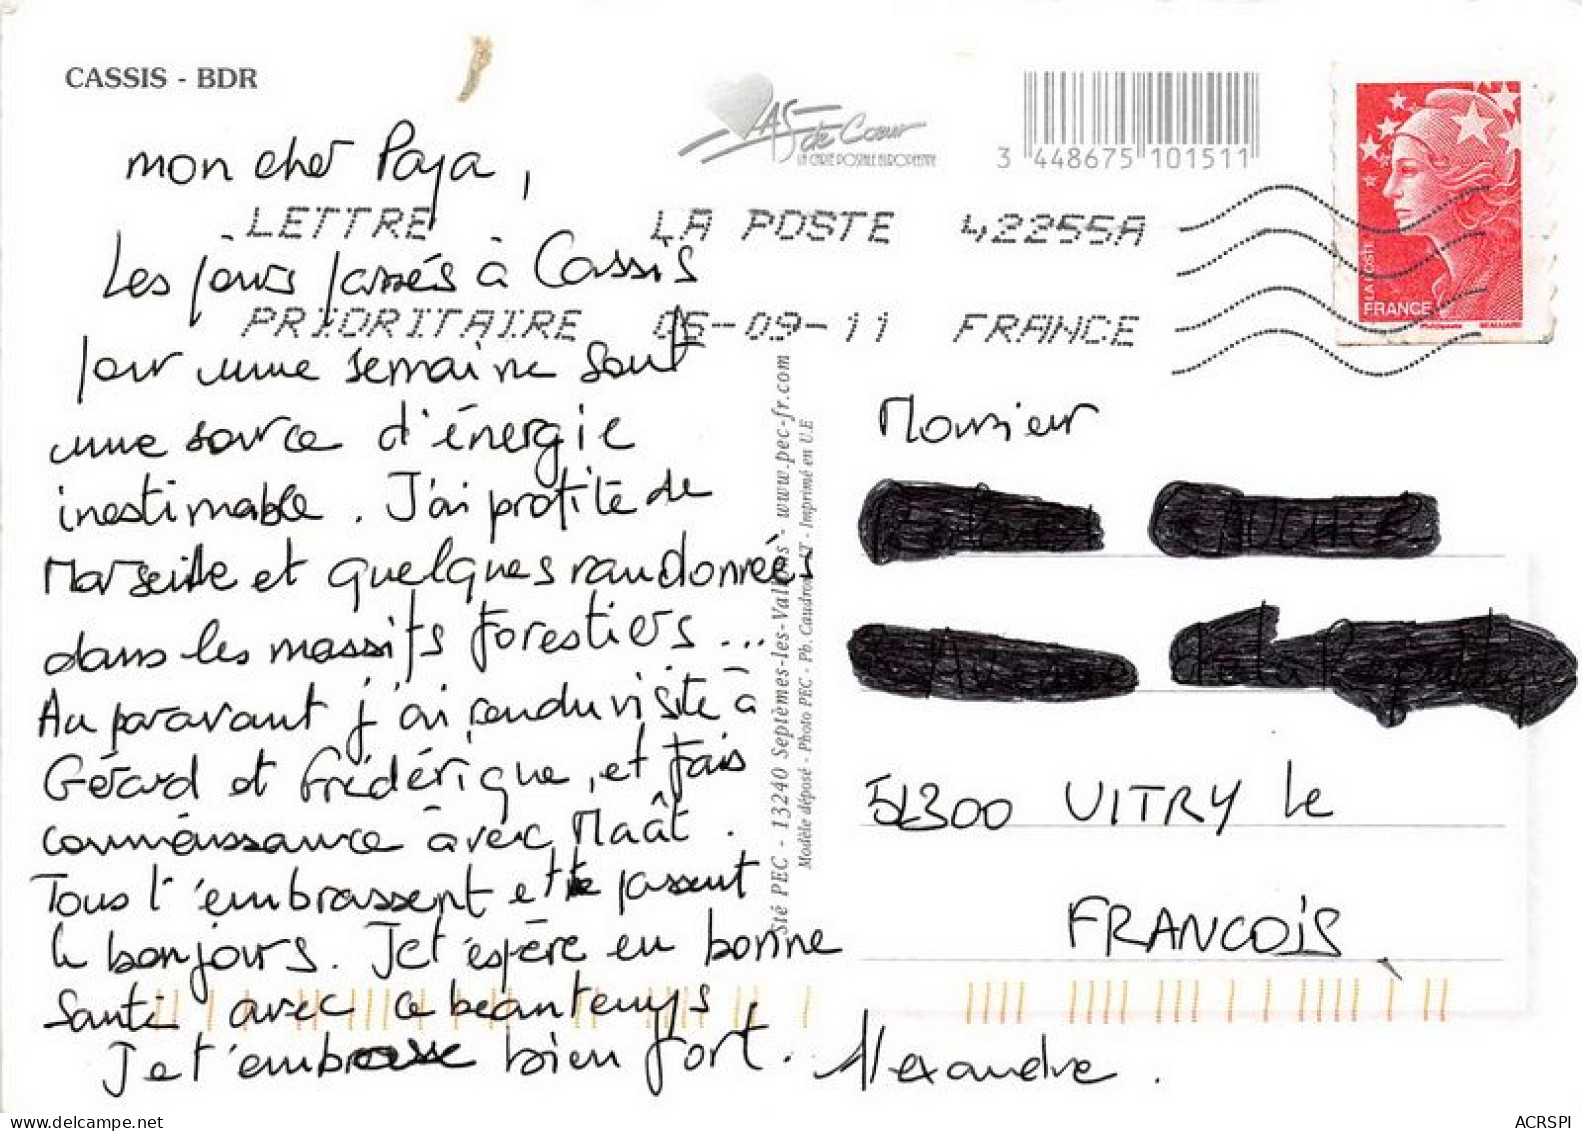 CASSIS - BDR
As de Cœur
LA CARTE POSTALE EUROPEENNE
3 448675 101511
LA POSTE
FRANCE
Phil@poste BEAUJARD
LETTRE LA POSTE 42255A
PRIORITAIRE 05-09-11 FRANCE
mon cher Papa,
Les jours passés à Cassis
pour une semaine sont
une source d'énergie
inestimable. J'ai profité de
Marseille et quelques randonnées
dans les massifs forestiers...
Au paravant j'ai rendu visite à
Gérard et Frédérique, et fais
connaissance avec Maât.
Tous t'embrassent et te passent
le bonjours. Je t'espère en bonne
Santé avec ce beau temps,
Je t'embrasse bien fort. Alexandre.
Sté PEC - 13240 Septèmes-les-Vallons - www.pec-fr.com
Modèle déposé - Photo PEC - Ph. Caudron - Imprimé en U.E
Monsieur
51300 VITRY le
FRANCOIS
ACRSPI